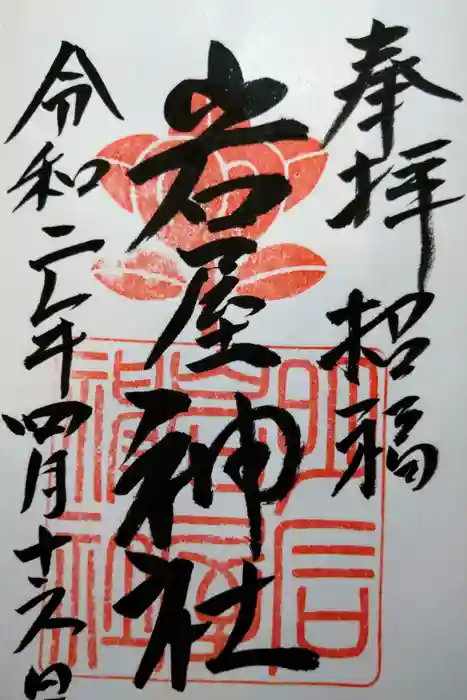 奉拝 招福
岩屋神社
令和二年四月十六日
岩屋
神社